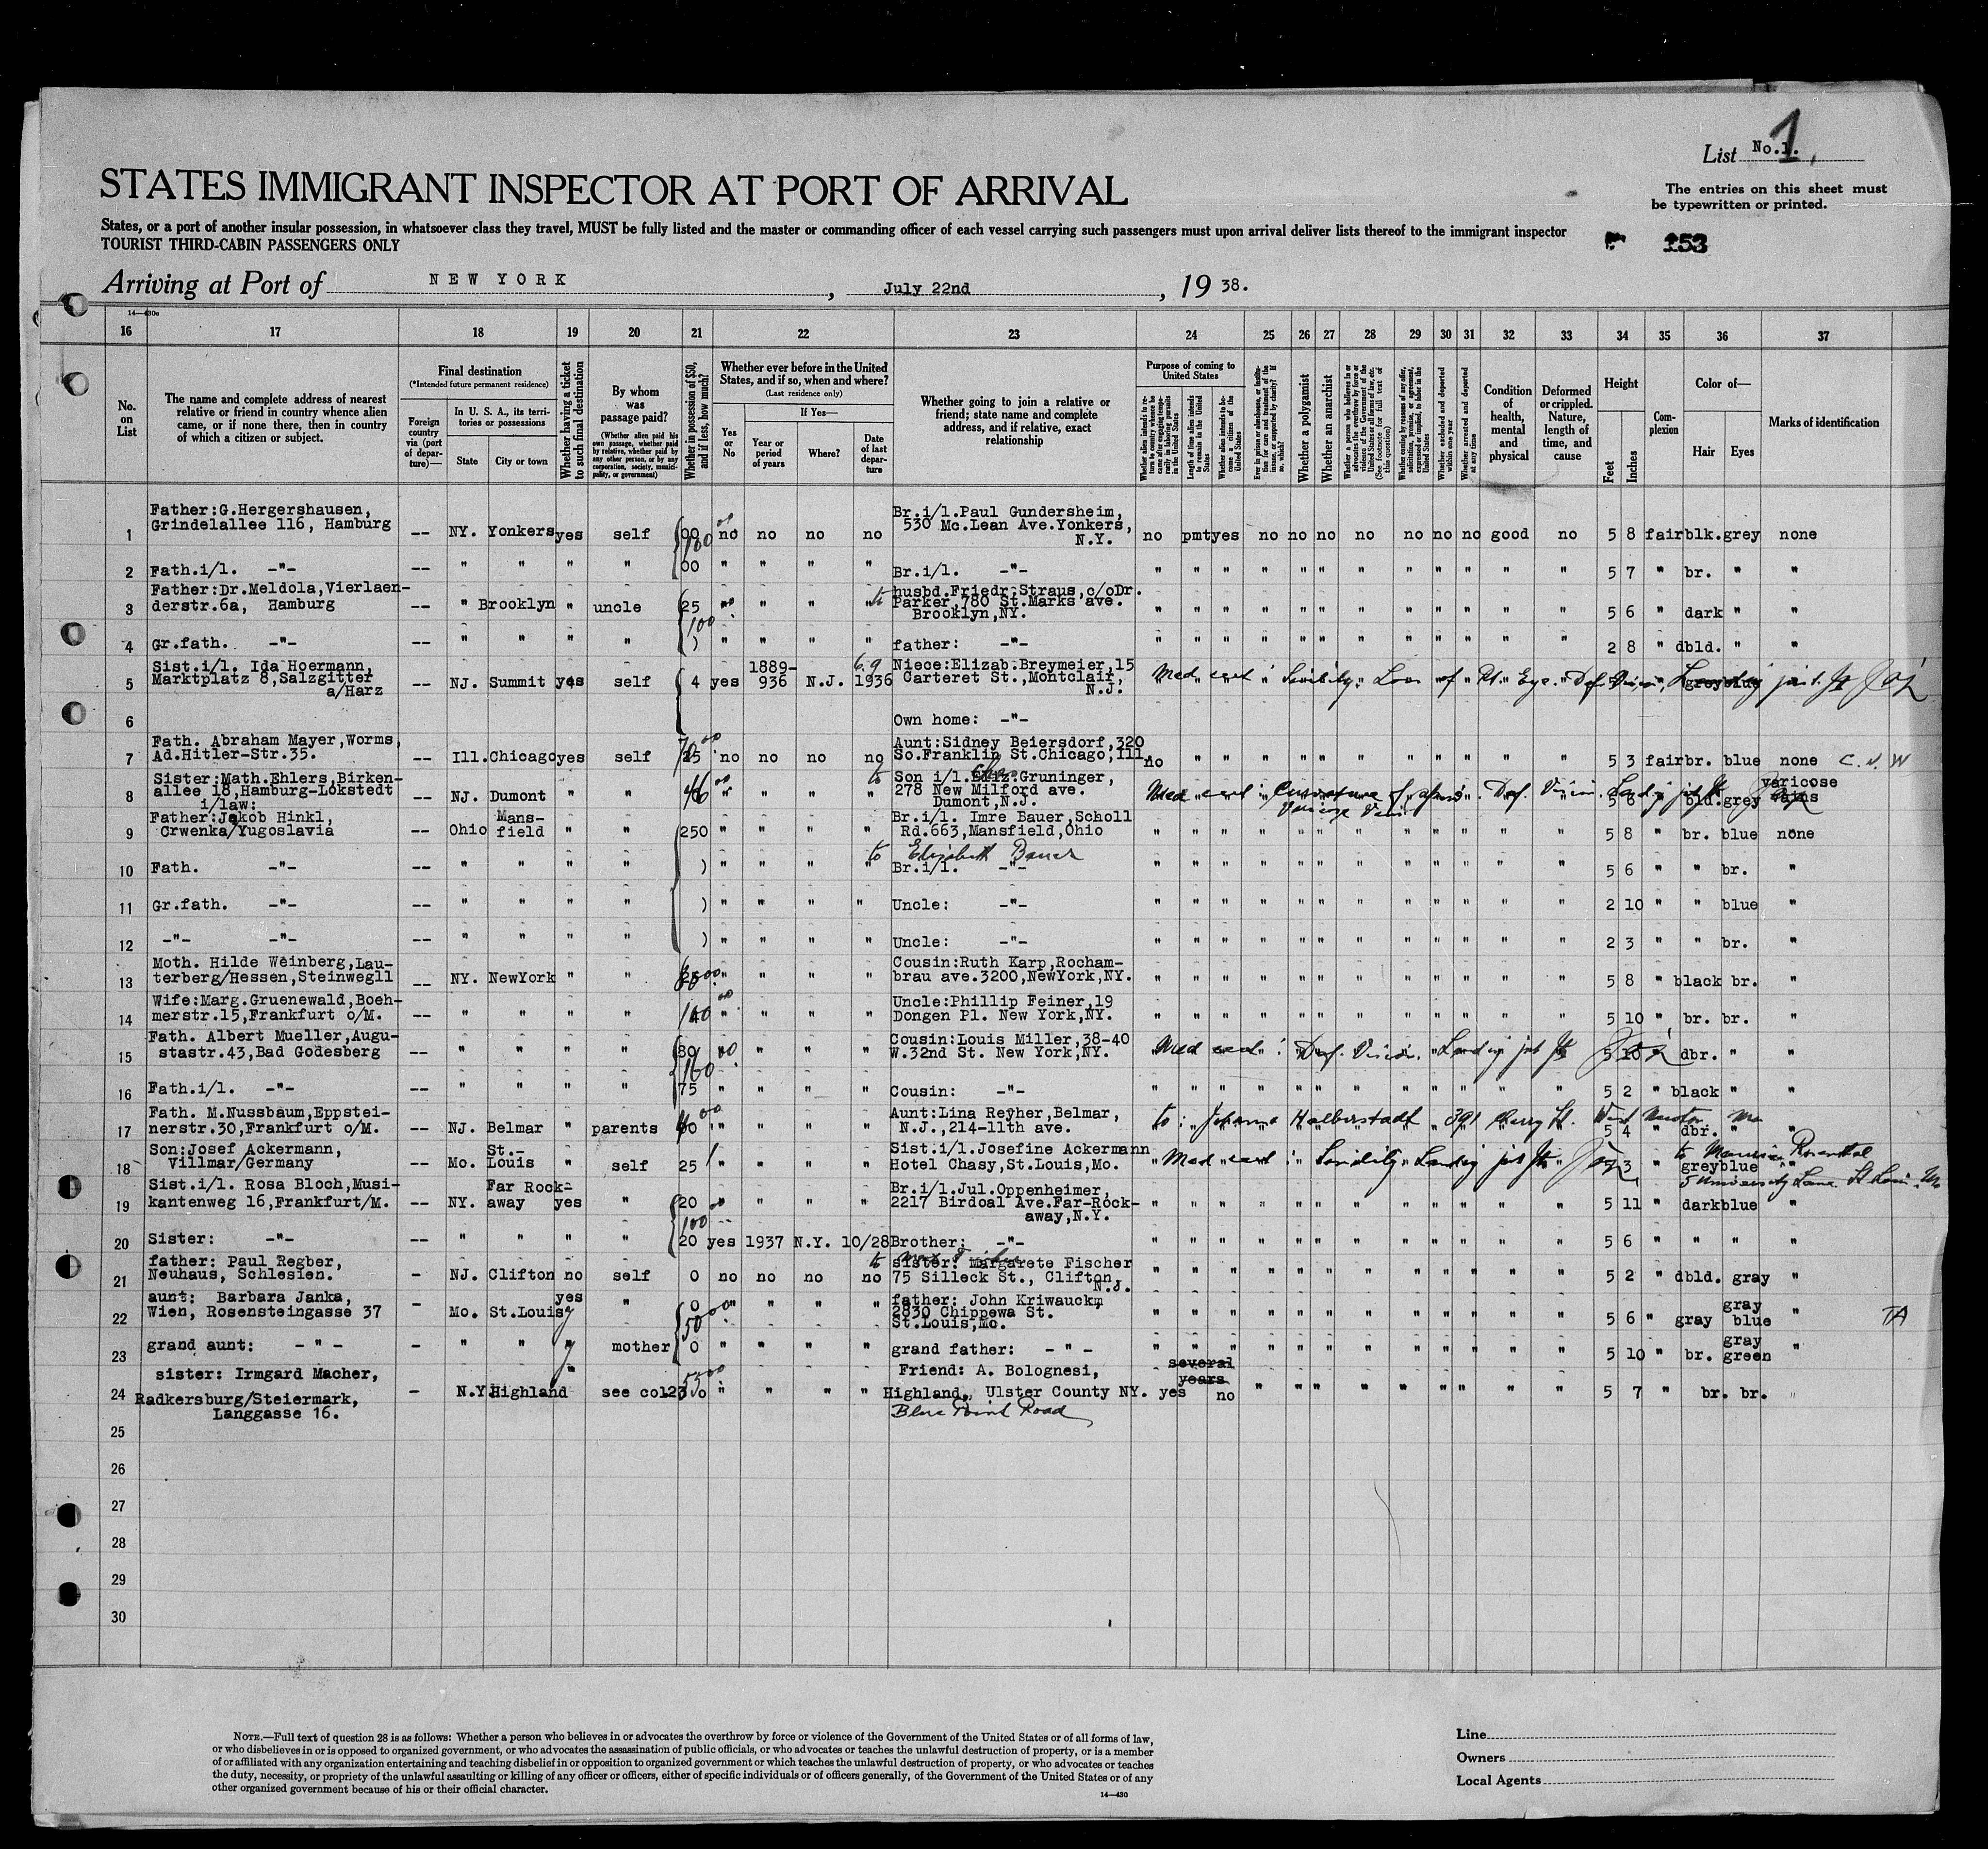 List No.1. 1
STATES IMMIGRANT INSPECTOR AT PORT OF ARRIVAL
The entries on this sheet must
be typewritten or printed.
States, or a port of another insular possession, in whatsoever class they travel, MUST be fully listed and the master or commanding officer of each vessel carrying such passengers must upon arrival deliver lists thereof to the immigrant inspector
TOURIST THIRD-CABIN PASSENGERS ONLY
153
Arriving at Port of NEW YORK, July 22nd, 1938.
14—430c
16 17 18 19 20 21 22 23 24 25 26 27 28 29 30 31 32 33 34 35 36 37
No. on List
The name and complete address of nearest relative or friend in country whence alien came, or if none there, then in country of which a citizen or subject.
Final destination
(*Intended future permanent residence)
Foreign country via (port of departure)—
In U. S. A., its territories or possessions
State City or town
Whether having a ticket to such final destination
By whom was passage paid?
(Whether alien paid his own passage, whether paid by relative, whether paid by any other person, or by any corporation, society, municipality, or government)
Whether in possession of $50, and if less, how much?
Whether ever before in the United States, and if so, when and where?
(Last residence only)
Yes or No
If Yes—
Year or period of years
Where?
Date of last departure
Whether going to join a relative or friend; state name and complete address, and if relative, exact relationship
Purpose of coming to United States
Length of time alien intends to remain in the United States
Whether alien intends to become a citizen of the United States
Whether a polygamist
Whether an anarchist
(See footnote for full text of this question)
Whether excluded and deported within one year
Whether arrested and deported at any time
Condition of health, mental and physical
Deformed or crippled. Nature, length of time, and cause
Height
Feet Inches
Complexion
Color of—
Hair Eyes
Marks of identification
1 Father:G.Hergershausen, Grindelallee 116, Hamburg -- NY. Yonkers yes self 00 no no no no Br.i/l.Paul Gundersheim, 530 Mc.Lean Ave.Yonkers, N.Y. no pmt yes no no no no no no no good no 5 8 fair blk. grey none
100
2 Fath.i/l. -"- -- " " " " 00 " " " " Br.i/l. -"- " " " " " " " " " " " " 5 7 " br. " "
3 Father:Dr.Meldola,Vierlaen-derstr.6a, Hamburg -- " Brooklyn " uncle 25 " " " " husbd.Friedr.Straus,c/oDr. Parker,780 St.Marks ave. Brooklyn,NY. " " " " " " " " " " " " 5 6 " dark " "
100
4 Gr.fath. -"- -- " " " " ) " " " " father: -"- " " " " " " " " " " " " 2 8 " dbld. " "
5 Sist.i/l. Ida Hoermann, Marktplatz 8,Salzgitter a/Harz -- NJ. Summit yes self 4 yes 1889-936 N.J. 6.9 1936 Niece:Elizab.Breymeier,15 Carteret St.,Montclair, N.J. Med cert Senility Loss of Rt. Eye. Def. Vision, grey blue
6 Own home: -"-
7 Fath. Abraham Mayer,Worms, Ad.Hitler-Str.35. -- Ill. Chicago yes self 25 no no no no Aunt:Sidney Beiersdorf,320 So.Franklin St.Chicago,Ill. no " " " " " " " " " " " 5 3 fair br. blue none C.N.W
8 Sister:Math.Ehlers,Birken-allee 18,Hamburg-Lokstedt -- NJ. Dumont " " " " " " Son i/l. Gruninger, 278 New Milford ave. Dumont,N.J. Med cert Curvature of spine. Def. Vision. Varicose Veins 5 6 " bld. grey varicose vains
9 i/law: Father:Jakob Hinkl, Crwenka/Yugoslavia -- Ohio Mans-field " " 250 " " " " Br.i/l. Imre Bauer,Scholl Rd.663,Mansfield,Ohio " " " " " " " " " " " " 5 8 " br. blue none
to Elizabeth Bauer
10 Fath. -"- -- " " " " ) " " " " Br.i/l. -"- " " " " " " " " " " " " 5 6 " " br. "
11 Gr.fath. -"- -- " " " " ) " " " " Uncle: -"- " " " " " " " " " " " " 2 10 " " blue "
12 -"- -"- -- " " " " ) " " " " Uncle: -"- " " " " " " " " " " " " 2 3 " " br. "
13 Moth. Hilde Weinberg,Lau-terberg/Hessen,Steinwegll __ NY. NewYork " " " " " " Cousin:Ruth Karp,Rocham-brau ave.3200,NewYork,NY. " " " " " " " " " " " " 5 8 " black br. "
14 Wife:Marg.Gruenewald,Boeh-merstr.15,Frankfurt o/M. -- " " " " " " " " Uncle:Phillip Feiner,19 Dongen Pl. New York,NY. " " " " " " " " " " " " 5 10 " br. br. "
15 Fath. Albert Mueller,Augu-stastr.43,Bad Godesberg -- " " " " 80 " " " " Cousin:Louis Miller,38-40 W.32nd St. New York,NY. Med cert: Def. Vision. 5 10 dbr. " "
160
16 Fath.i/l. -"- -- " " " " 75 " " " " Cousin: -"- " " " " " " " " " " " " 5 2 " black " "
17 Fath. M.Nussbaum,Eppstei-nerstr.30,Frankfurt o/M. -- NJ. Belmar " parents " " " " Aunt:Lina Reyher,Belmar, N.J.,214-11th ave. to: Johanna Halberstadt 391 Cherry St. West Newton Ma 5 4 " dbr. " "
18 Son:Josef Ackermann, Villmar/Germany -- Mo. St.-Louis " self 25 " " " " Sist.i/l.Josefine Ackermann Hotel Chasy,St.Louis,Mo. Med cert: Senility 5 3 " grey blue " to Maurice Rosenthal 5 University Lane St Louis. Mo
19 Sist.i/l. Rosa Bloch,Musi-kantenweg 16,Frankfurt/M. -- NY. Far Rock-away yes " 20 " " " " Br.i/l.Jul.Oppenheimer, 2217 Birdoal Ave.Far-Rock-away,N.Y. " " " " " " " " " " " " 5 11 " dark blue "
100
20 Sister: -"- -- " " " " 20 yes 1937 N.Y. 10/28 Brother: -"- " " " " " " " " " " " " 5 6 " " " "
21 father: Paul Regber, Neuhaus, Schlesien. - NJ. Clifton no self 0 no no no no sister: Margarete Fischer 75 Silleck St., Clifton, N.J. " " " " " " " " " " " " 5 2 " dbld. gray "
22 aunt: Barbara Janka, Wien, Rosensteingasse 37 - Mo. St.Louis yes " 0 " " " " father: John Kriwauckm 2830 Chippewa St. St.Louis,Mo. " " " " " " " " " " " " 5 6 " gray gray blue " TA
50
23 grand aunt: - " - - " " " mother 0 " " " " grand father: - " - " " " " " " " " " " " " 5 10 " br. gray green "
24 sister: Irmgard Macher, Radkersburg/Steiermark, Langgasse 16. - N.Y. Highland " see col 23 " " " " Friend: A. Bolognesi, Highland, Ulster County NY. several years yes no " " " " " " " " " 5 7 " br. br. "
Blue Point Road
25
26
27
28
29
30
NOTE.—Full text of question 28 is as follows: Whether a person who believes in or advocates the overthrow by force or violence of the Government of the United States or of all forms of law,
or who disbelieves in or is opposed to organized government, or who advocates the assassination of public officials, or who advocates or teaches the unlawful destruction of property, or is a member
of or affiliated with any organization entertaining and teaching disbelief in or opposition to organized government or which teaches the unlawful destruction of property, or who advocates or teaches
the duty, necessity, or propriety of the unlawful assaulting or killing of any officer or officers, either of specific individuals or of officers generally, of the Government of the United States or of any
other organized government because of his or their official character.
14—430
Line
Owners
Local Agents